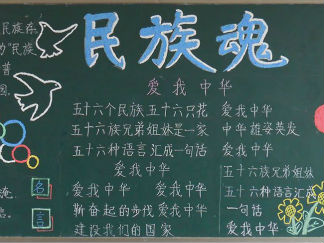 民族魂
民族存
为"民族
昔
爱我中华
五十六个民族 五十六只花 爱我中华
五十六族兄弟姐妹是一家 中华雄姿英发
五十六种语言 汇成一句话 爱我中华
爱我中华
五十六族兄弟姐妹
爱我中华 爱我中华
五十六种语言汇成
新奋起的步伐 爱我中华
一句话
建设我们的国家
爱我中华
名
言